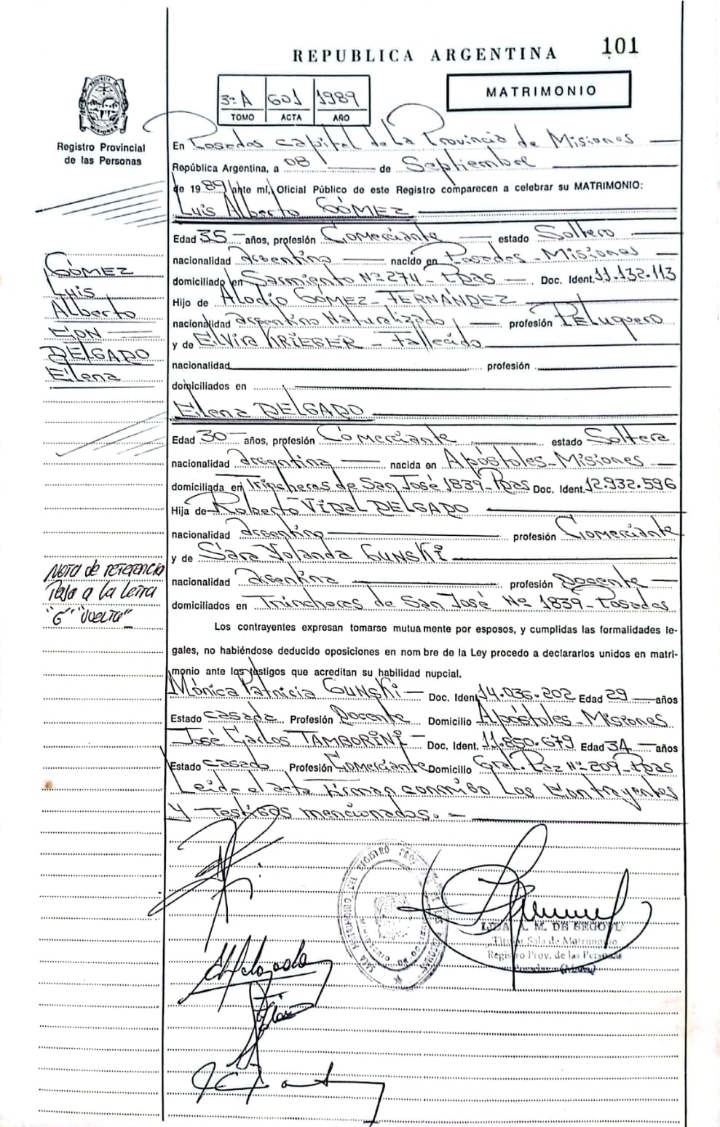 REPUBLICA ARGENTINA
101
3=A 601 1989
TOMO ACTA AÑO
MATRIMONIO
Registro Provincial
de las Personas
En Posadas Capital de La Provincia de Misiones
República Argentina, a 08 de Septiembre
de 1989 ante mí, Oficial Público de este Registro comparecen a celebrar su MATRIMONIO:
Luis Alberto GÓMEZ
Edad 35 años, profesión Comerciante estado Soltero
nacionalidad argentino nacido en Posadas - Misiones
domiciliado en Sarmiento Nº 274 - Pdas Doc. Ident. 11.132.113
Hijo de Alodio GOMEZ - FERNÁNDEZ
nacionalidad argentino Naturalizado profesión Peluquero
y de Elvira KRIEGER - Fallecido
nacionalidad profesión
domiciliados en
Elena DELGADO
Edad 30 años, profesión Comerciante estado Soltera
nacionalidad argentina nacida en Apóstoles - Misiones
domiciliada en Trincheras de San José 1839 - Pdas Doc. Ident. 12.932.596
Hija de Roberto Vidal DELGADO
nacionalidad argentino profesión Comerciante
y de Sara Yolanda GUNSKI
nacionalidad argentina profesión Docente
domiciliados en Trincheras de San José Nº 1839 - Posadas
GÓMEZ
Luis
Alberto
CON
DELGADO
Elena
Nota de referencia
Pasa a la Letra
"G" Vuelta"
Los contrayentes expresan tomarse mutuamente por esposos, y cumplidas las formalidades le-
gales, no habiéndose deducido oposiciones en nombre de la Ley procedo a declararlos unidos en matri-
monio ante los testigos que acreditan su habilidad nupcial.
Mónica Patricia GUNSKI Doc. Ident. 14.036.202 Edad 29 años
Estado Casada Profesión Docente Domicilio Apóstoles Misiones
José Carlos TAMBORINI Doc. Ident. 11.850.679 Edad 34 años
Estado Casado Profesión Comerciante Domicilio Gral. Paz Nº 209 - Pdas
Leída el acta firman conmigo Los Contrayentes
y Testigos mencionados. -
A. M. DE
Titular Sala de Matrimonio
Registro Prov. de las Personas